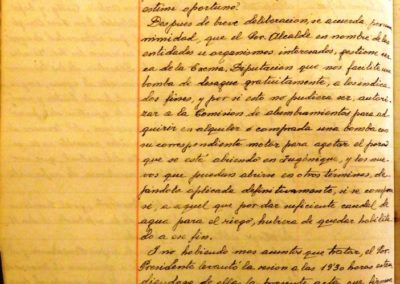 estime oportuno?
Despues de breve deliberacion, se acuerda por una
nimidad, que el Sor. Alcalde en nombre de las
entidades u organismos interesados, gestione cer
ca de la Excma. Diputacion que nos facilite una
bomba de desague gratuitamente, a los indica
dos fines, y por si esto no pudiera ser, autori
zar a la Comision de alumbramientos para ad
quirir en alquiler ó comprada una bomba con
su correspondiente motor para agotar el pozo
que se esté abriendo en y los nue
vos que puedan abrirse en otros terminos, de
jandola aplicada definitivamente, si se compra
se, a aquel que por dar suficiente caudal de
agua para el riego, hubiera de quedar habilita
do a ese fin.
Y no habiendo mas asuntos que tratar, el Sor.
Presidente levantó la sesion a las 19'30 horas exten
diendose de ella la presente acta que firman